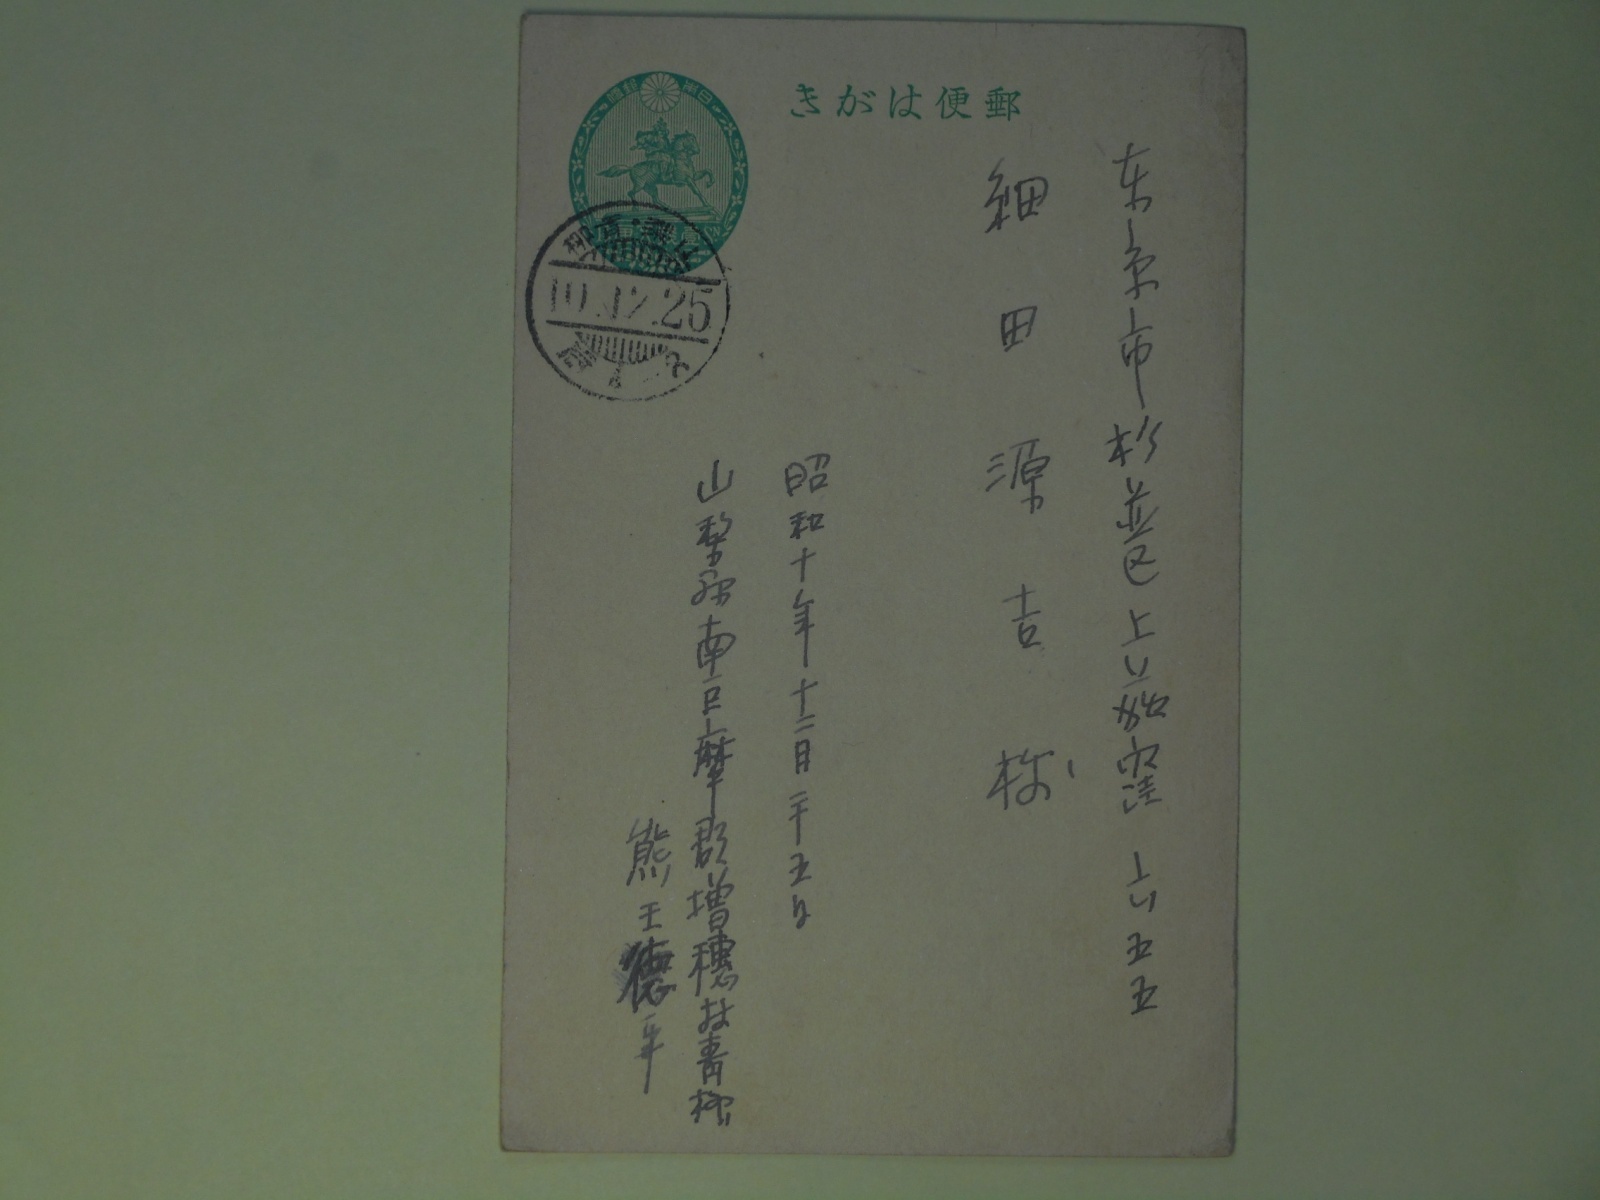 郵便はがき
東京市杉並区上荻窪一六五五
細田源吉様
昭和十年十二月二十五日
山梨県南巨摩郡増穂村青柳
熊王徳平
10.12.25